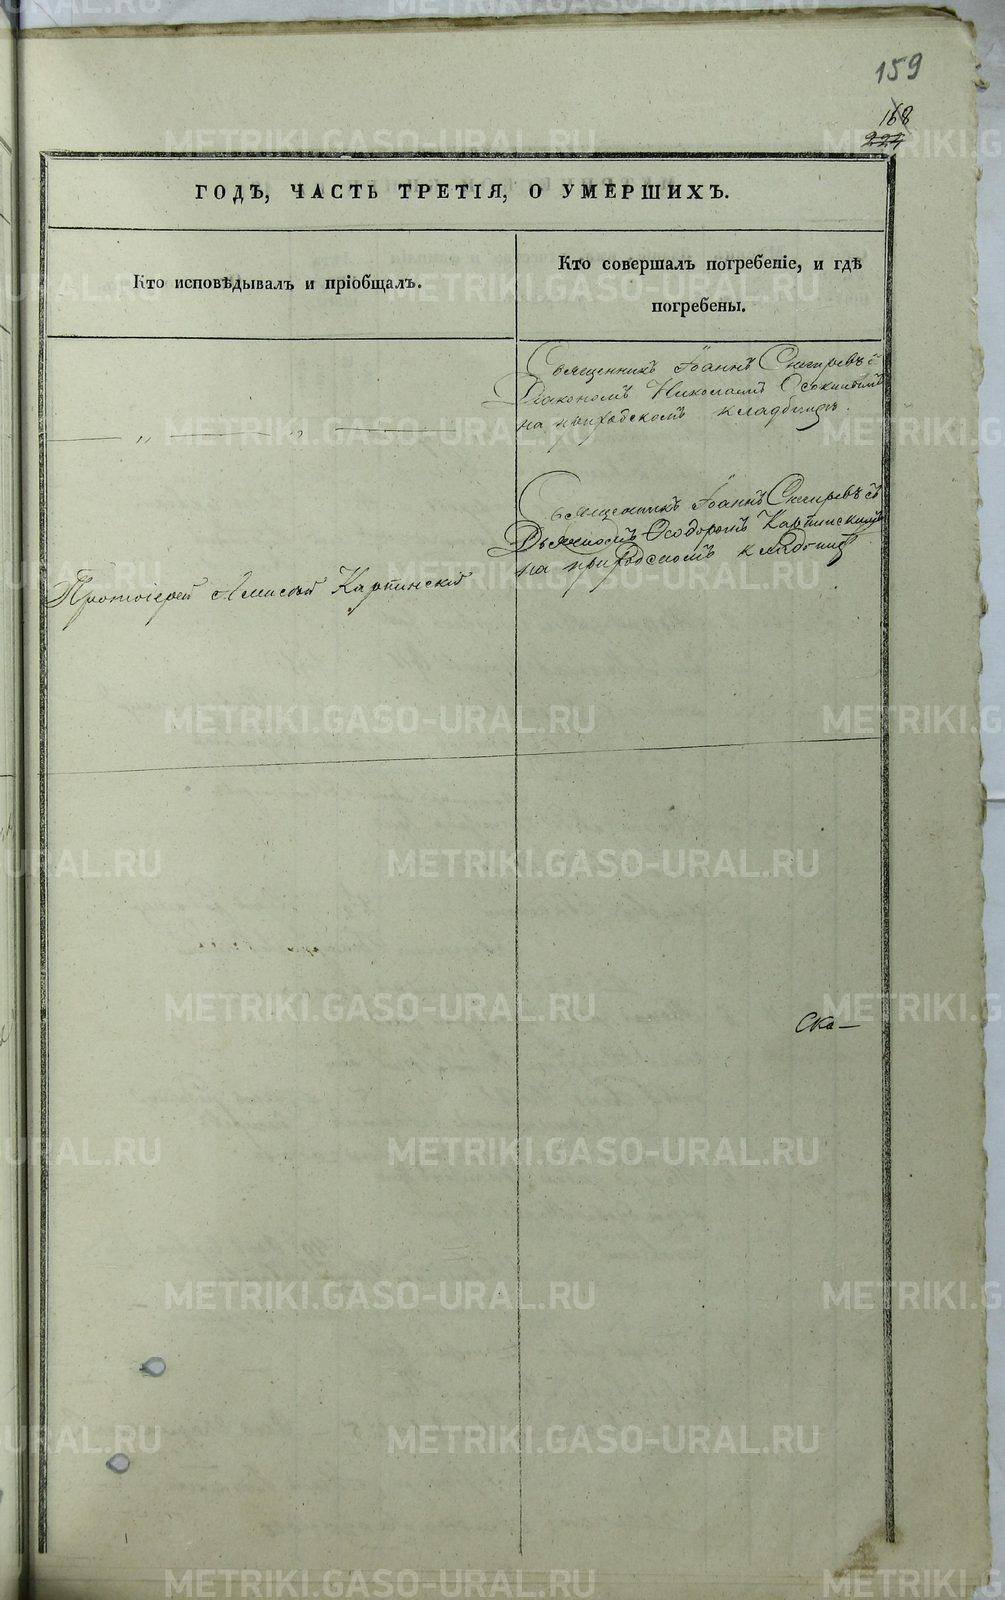 159
168
224
ГОДЪ, ЧАСТЬ ТРЕТІЯ, О УМЕРШИХЪ.
Кто исповѣдывалъ и пріобщалъ.
Кто совершалъ погребеніе, и гдѣ
погребены.
Священникъ Іоаннъ Снегиревъ съ
Діакономъ Николаемъ Осокинымъ
на приходскомъ кладбищѣ.
— „ — „ —
Священникъ Іоаннъ Снегиревъ съ
Дьячкомъ Ѳеодоромъ Карпинскимъ
на приходскомъ кладбищѣ
Протоіерей Алексѣй Карпинскій
ска—
METRIKI.GASO-URAL.RU